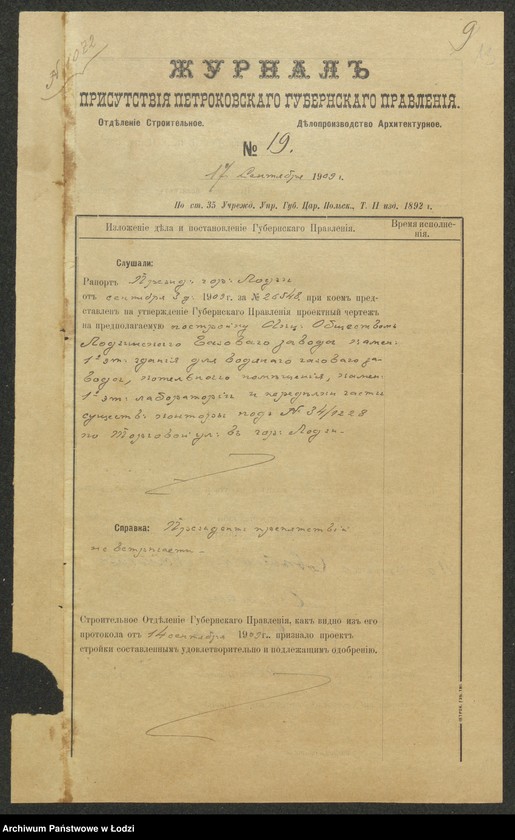 № 1022
9
ЖУРНАЛЪ
ПРИСУТСТВІЯ ПЕТРОКОВСКАГО ГУБЕРНСКАГО ПРАВЛЕНІЯ.
Отдѣленіе Строительное. Дѣлопроизводство Архитектурное.
№ 19.
17 Сентября 1909 г.
По ст. 35 Учрежд. Упр. Губ. Цар. Польск., Т. II изд. 1892 г.
Изложеніе дѣла и постановленіе Губернскаго Правленія.
Время исполне-
нія.
Слушали:
Рапортъ Презид: гор: Лодзи
отъ сентября 3 д: 1909 г. за № 26548 при коемъ пред-
ставленъ на утвержденіе Губернскаго Правленія проектный чертежъ
на предполагаемую постройку Акц: Обществомъ
Лодзинскаго Газоваго завода камен:
1 эт: зданія для водянаго газоваго за-
вода, котельнаго помѣщенія, камен:
1 эт: лабораторіи и передѣлки части
существ: конторы подъ № 34/1228
по Торговой ул: въ гор: Лодзи.
Справка: Президентъ препятствій
не встрѣчаетъ.
Строительное Отдѣленіе Губернскаго Правленія, какъ видно изъ его
протокола отъ 14 сентября 1909 г., признало проектъ
стройки составленнымъ удовлетворительно и подлежащимъ одобренію.
Archiwum Państwowe w Łodzi